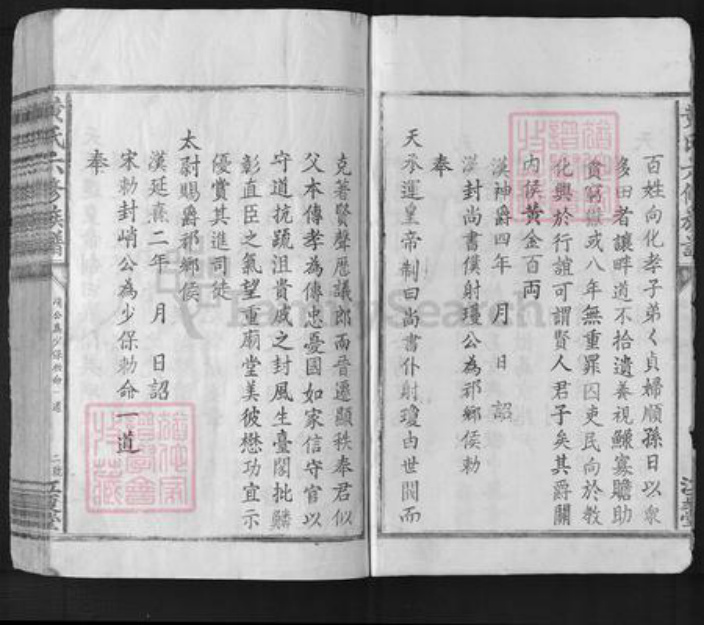 百姓向化孝子弟〱貞婦順孫日以衆
多田者讓畔道不拾遺養視鰥寡贍助
貧窮獄或八年無重罪囚吏民向於教
化興於行誼可謂賢人君子矣其爵關
內侯黃金百兩
漢神爵四年 月 日 詔
漢封尚書僕射瓊公為祁鄉侯勅
奉
天承運皇帝制曰尚書仆射瓊由世閥而
克著賢聲歷議郎而晉遷顯秩奉君似
父本傳孝為傳忠憂國如家信守官以
守道抗䟽沮貴戚之封風生臺閣批鱗
彰直臣之氣望重廟堂美彼懋功宜示
優賞其進司徒
太尉賜爵祁鄉侯
漢延熹二年 月 日 詔
宋勅封峭公為少保勅命一道
奉
黃氏六修族譜
峭公為少保勅命一道
江夏堂
FamilySearch